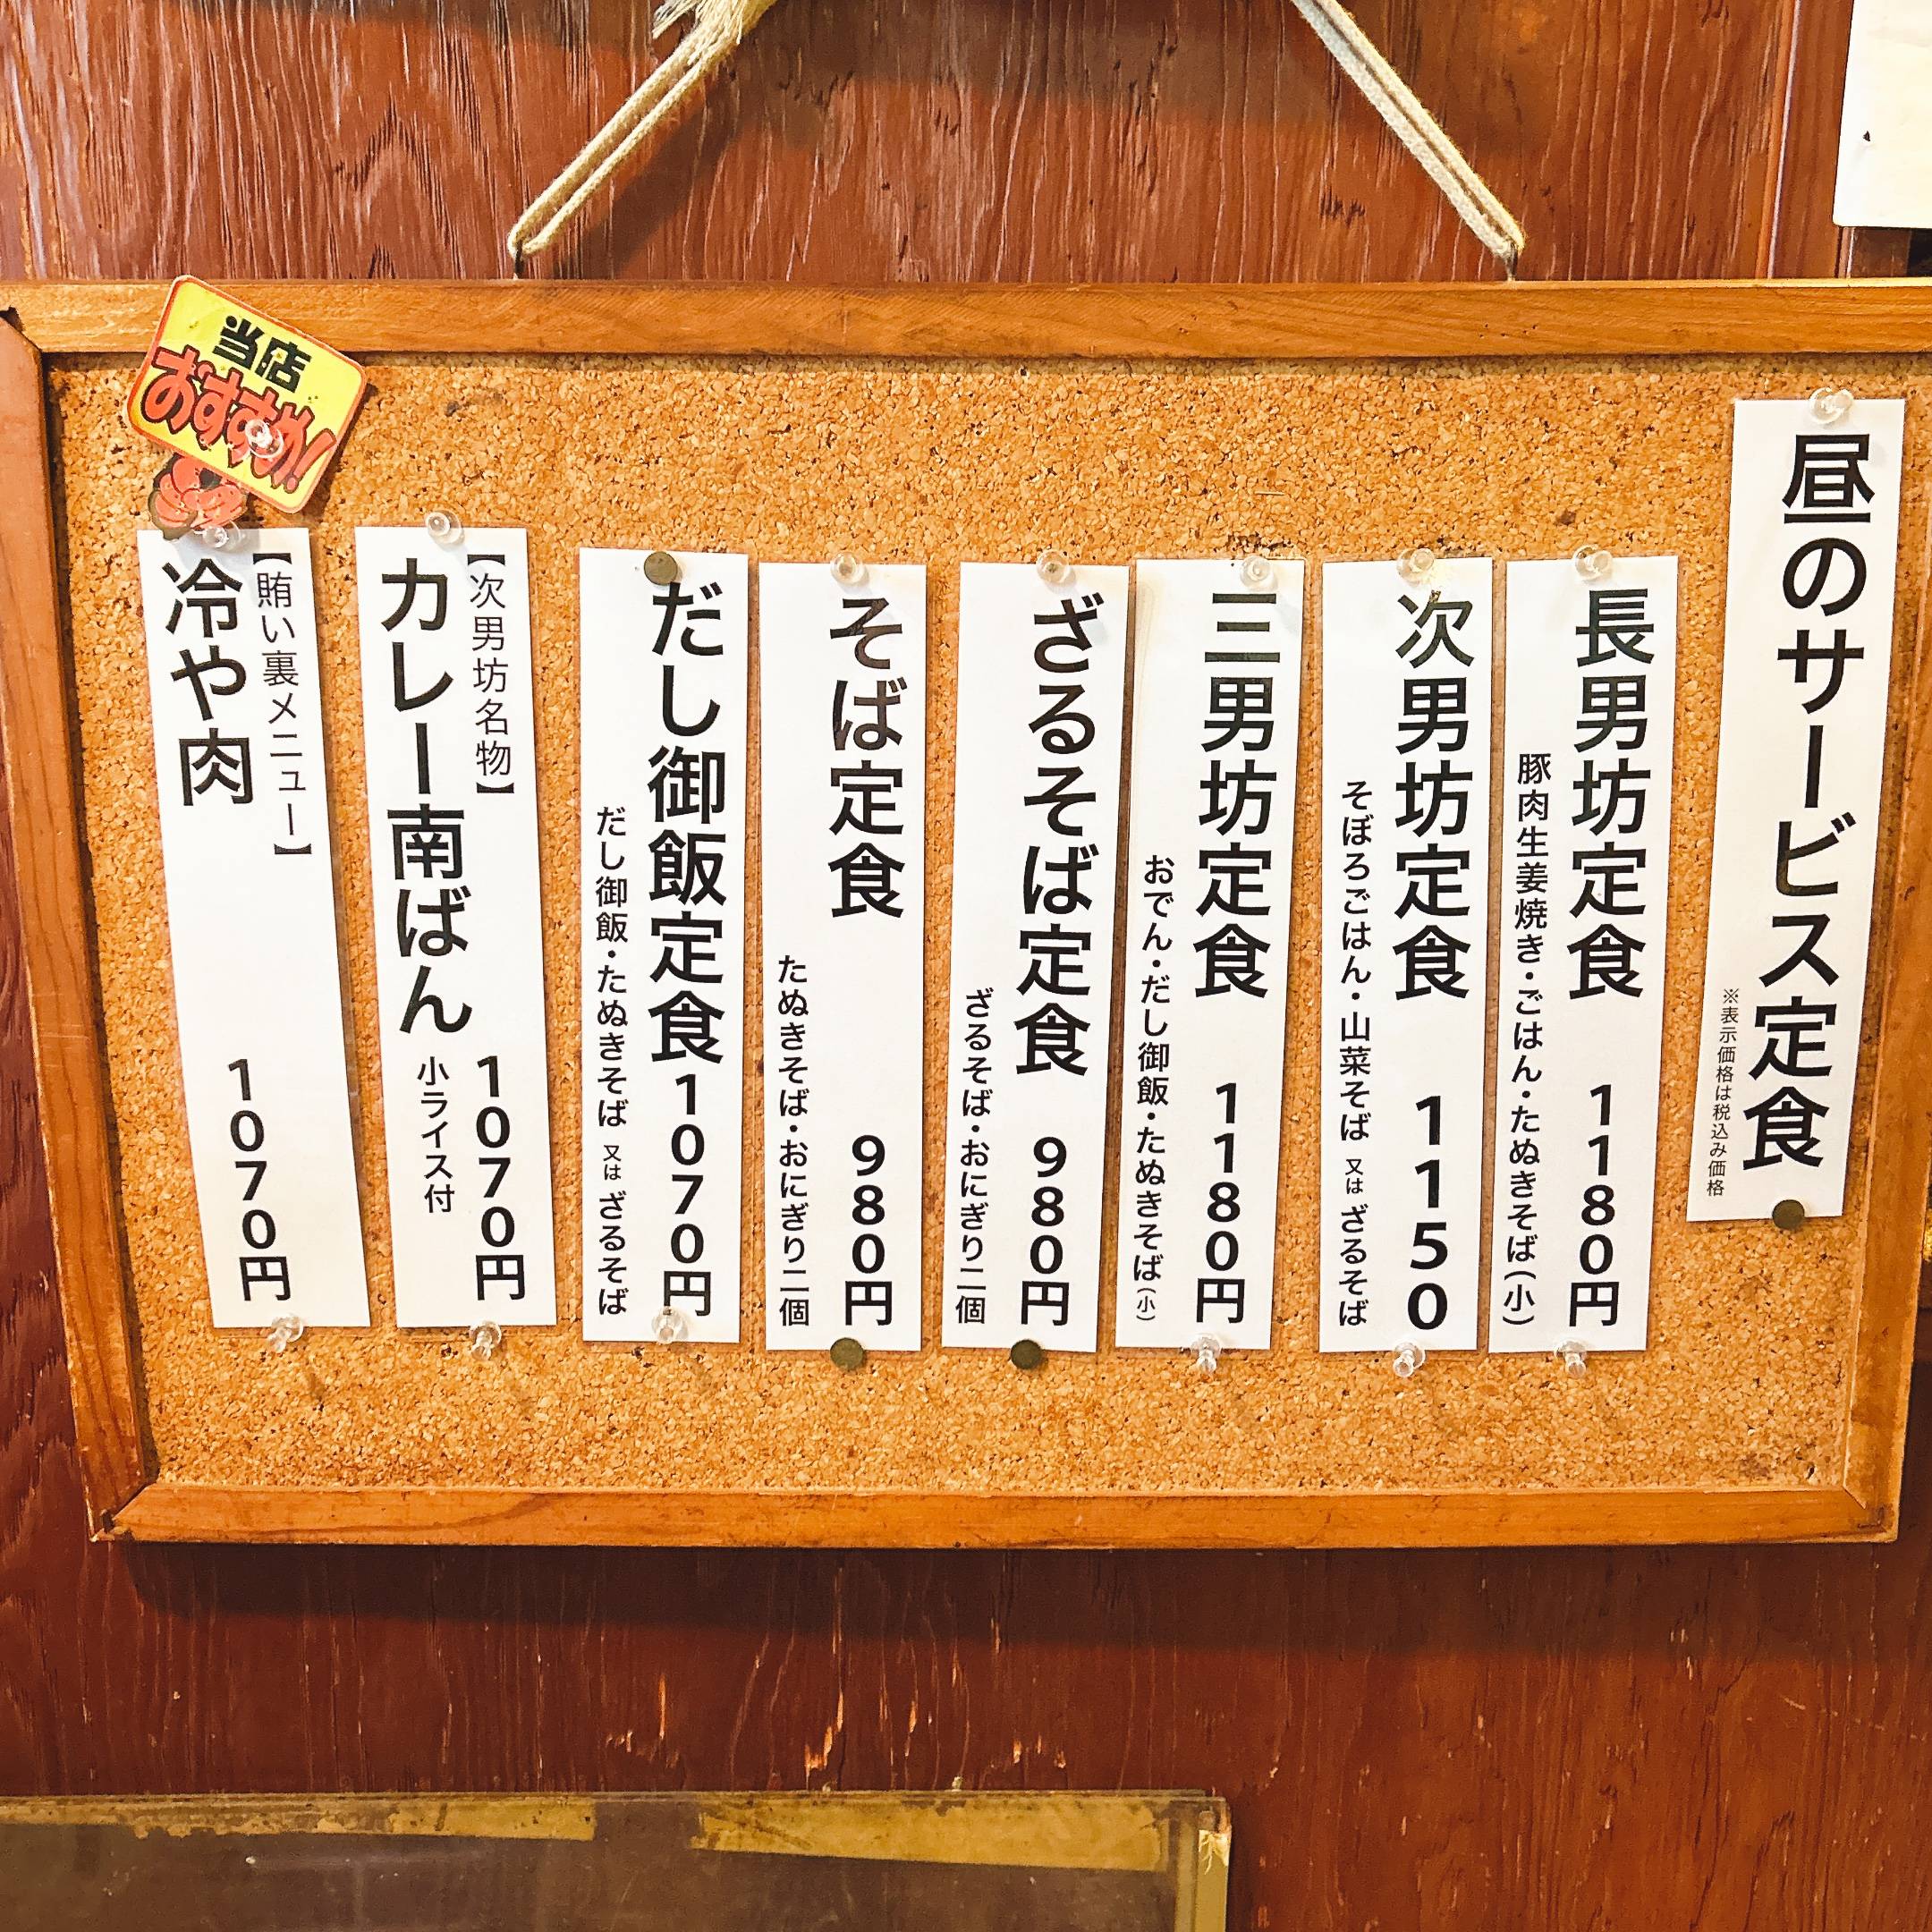 昼のサービス定食
※表示価格は税込み価格
長男坊定食 1180円
豚肉生姜焼き・ごはん・たぬきそば(小)
次男坊定食 1150
そぼろごはん・山菜そば 又は ざるそば
三男坊定食 1180円
おでん・だし御飯・たぬきそば(小)
ざるそば定食 980円
ざるそば・おにぎり二個
そば定食 980円
たぬきそば・おにぎり二個
だし御飯定食 1070円
だし御飯・たぬきそば 又は ざるそば
【次男坊名物】
カレー南ばん 1070円
小ライス付
当店
おすすめ!
【賄い裏メニュー】
冷や肉 1070円